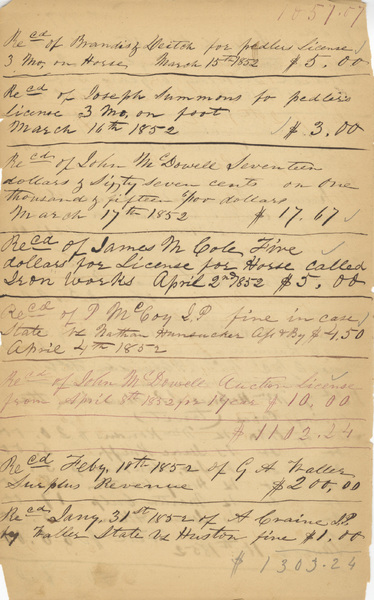 1057.07
Recd of Brandis & Deitch for pedlers License
3 Mo, on Horse March 15th 1852 $5.00
Recd of Joseph Summons fo pedlers
license 3 Mo, on foot
March 16th 1852 $3.00
Recd of John McDowell Seventeen
dollars & Sixty seven cents on One
thousand & fifteen dollars
March 17th 1852 $17.67
Recd of James M Cole Five
dollars for License for Horse called
Iron Works April 2nd 1852 $5.00
Recd of P McCoy J.P. fine in case
State vs Nathan Hunsucker Aft & By $4.50
April 4th 1852
Recd of John McDowell Auction License
from April 5th 1852 for 1 year $10.00
$1102.24
Recd Feby. 18th 1852 of G A Waller
Surplus Revenue $200,00
Recd Jany. 31st 1852 of A Craine J.P.
by Waller State vs Huston fine $1.00
$1303.24